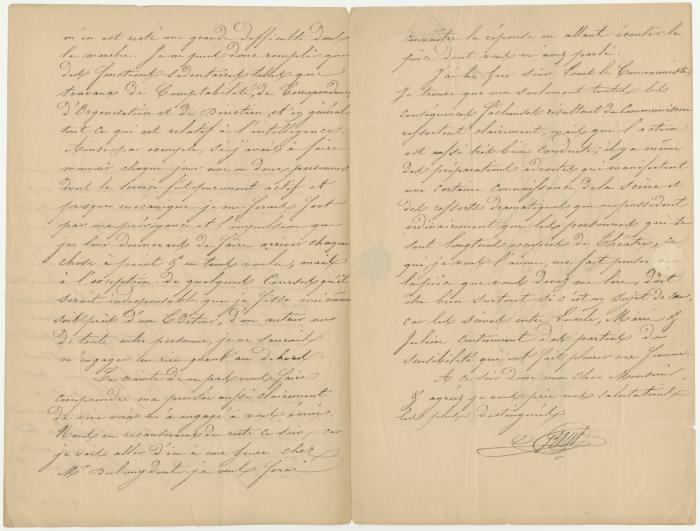 m'en est resté une grande difficulté dans
la marche. Je ne puis donc remplir que
des fonctions sédentaires telles que
travaux de Comptabilité, de Correspondance,
d'Organisation et de Direction, et en général
tout ce qui est relatif à l'intelligence.
Ainsi par exemple, si j'avais à faire
mouvoir chaque jour une ou deux personnes
dont le service fut purement actif et
presque mécanique je me ferais fort
par ma prévoyance et l'impulsion que
je leur donnerais de faire arriver chaque
chose à point & en tems voulu, mais
à l'exception de quelques Courses qu'il
serait indispensable que je fisse moi même
soit près d'un Editeur, d'un auteur ou
de toute autre personne, je ne saurais
m'engager en rien quant au dehors.
La crainte de ne pas vous faire
comprendre ma pensée aussi clairement
de vive voix m'a engagé à vous écrire.
Nous en recauserons du reste ce soir, car
je vais aller d'ici à une heure chez
Mr. dont je vous ferai
connaître la réponse en allant écouter la
pièce dont vous m'avez parlé.
J'ai lu hier soir le Communiste
Je trouve que non seulement toutes les
conséquences fâcheuses résultant du Communisme
ressortent clairement, mais que l'action
est aussi très bien conduite; il y a même
des préparations adroites qui manifestent
une certaine connaissance de la scène et
des ressorts dramatiques que ne possèdent
ordinairement que les personnes qui se
sont longtems occupées de théâtre, ce
qui je vous l'avoue, me fait penser que
la pièce que vous devez me lire, doit
être bien surtout si c'est un sujet de cœur,
car les scènes entre Lucile, Marie &
Julien contiennent des parties de
sensibilité qui ont fait pleurer ma femme.
A ce soir donc mon cher Monsieur,
& agréez je vous prie mes salutations
les plus distinguées